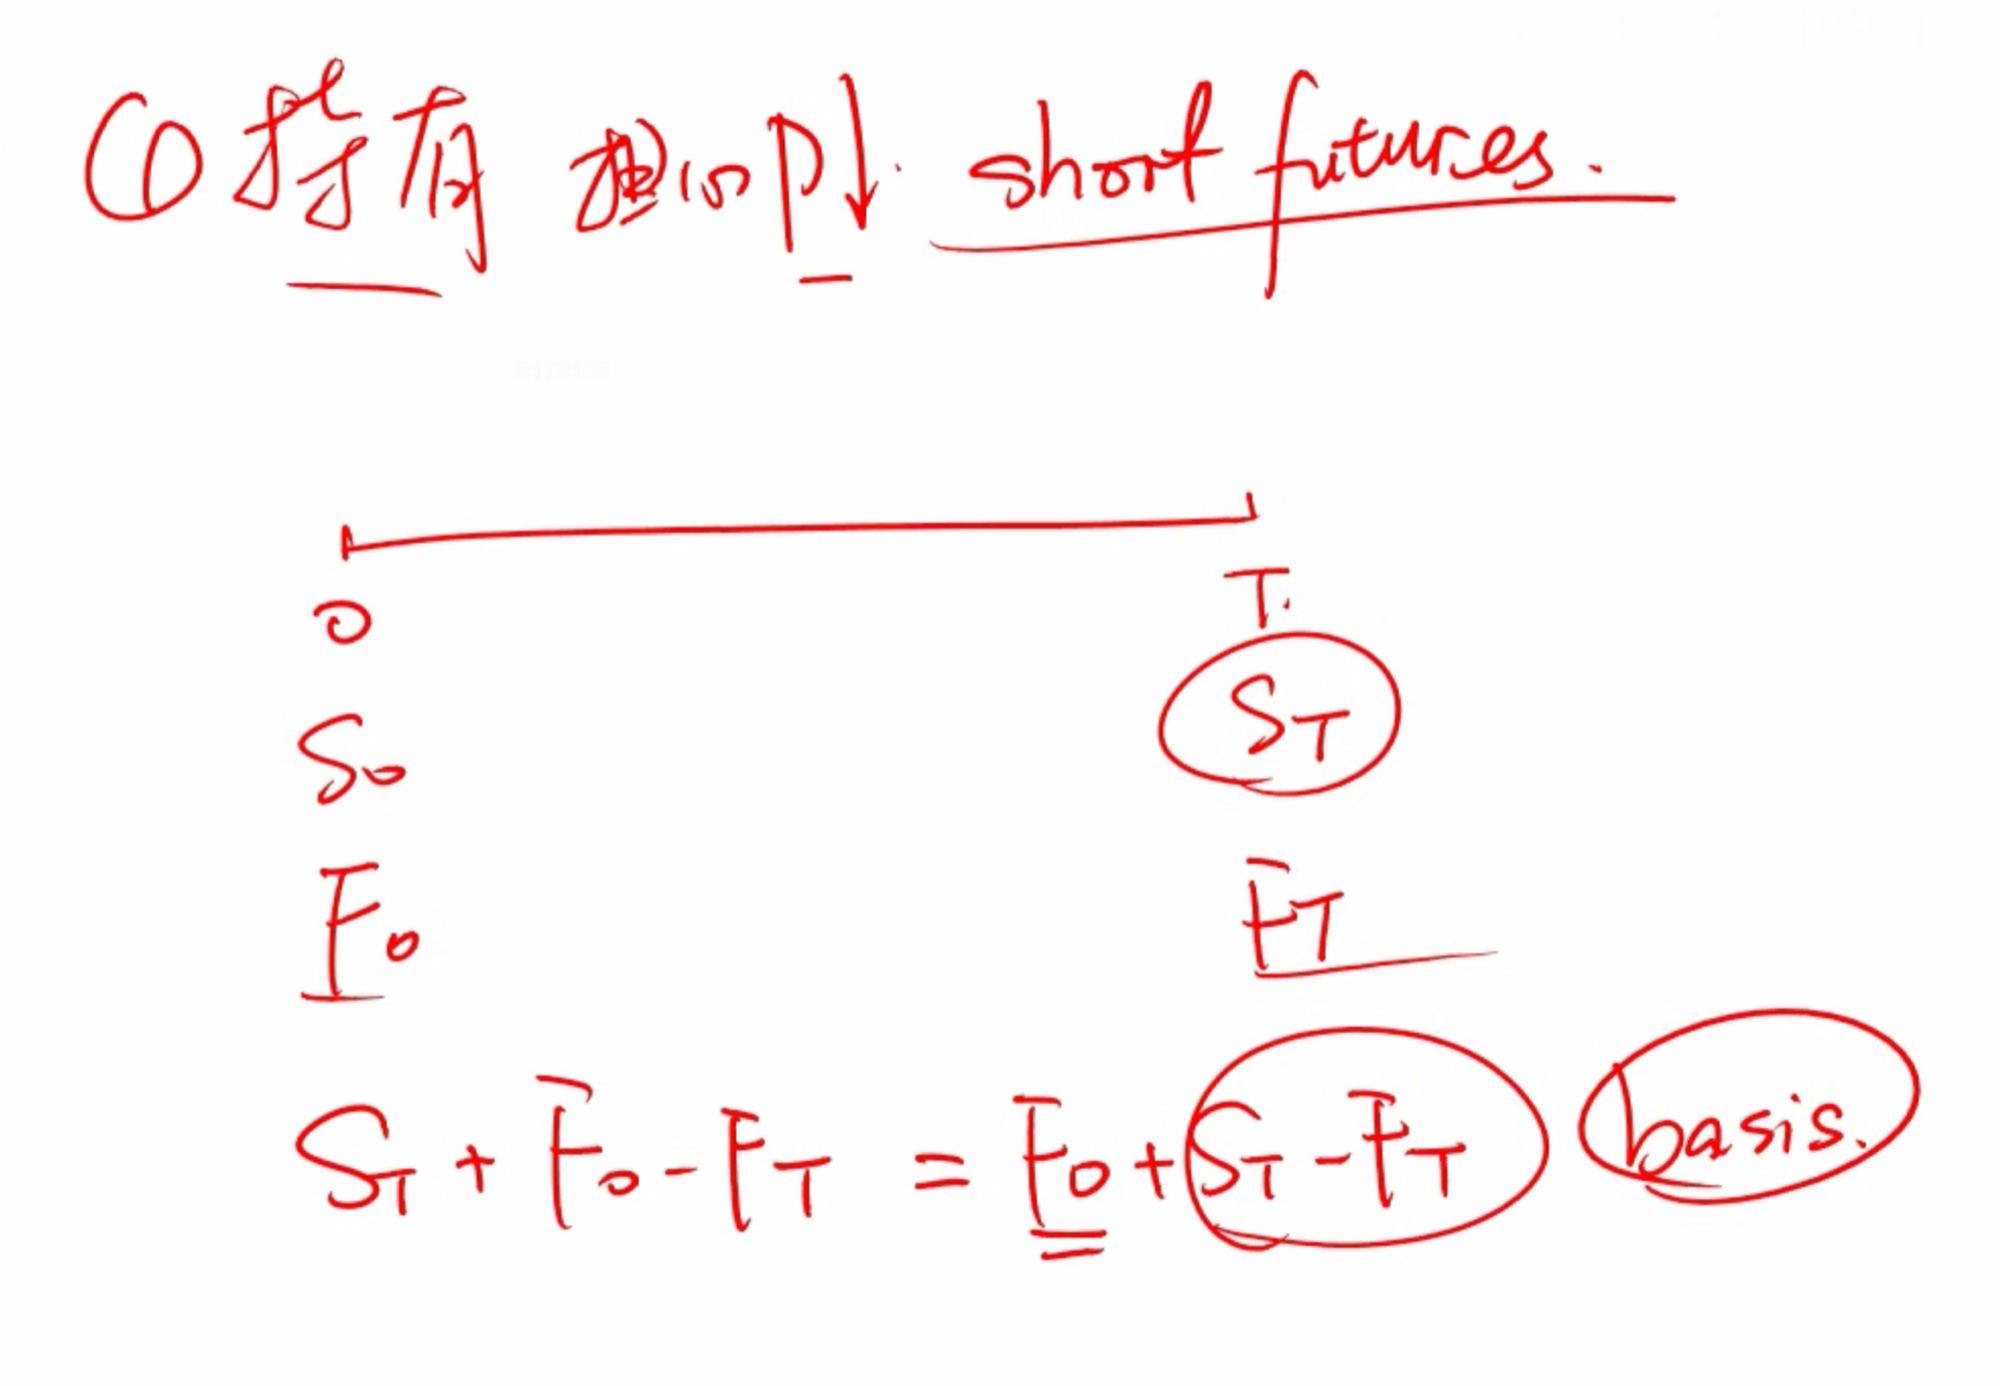 ① 持有 担心P↓. short futures.
0 T.
S₀ S_T
F₀ F_T
S_T + F₀ - F_T = F₀ + S_T - F_T basis.